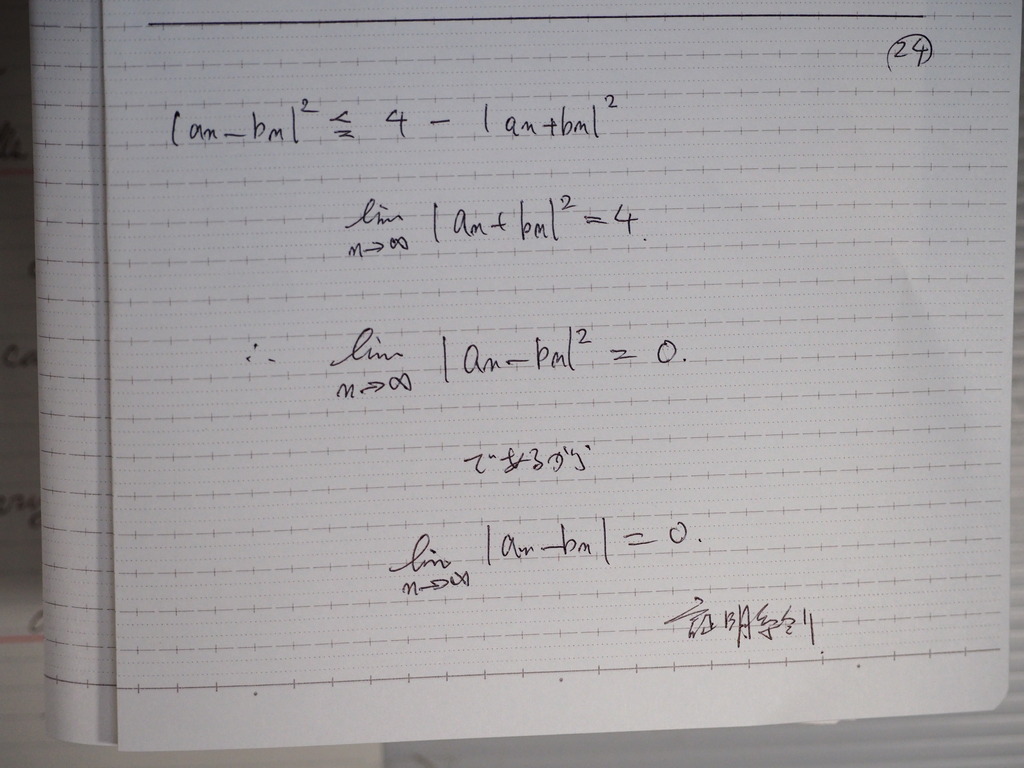 24
|an-bn|² ≦ 4 - |an+bn|²
lim n→∞ |an+bn|² = 4.
∴ lim n→∞ |an-bn|² = 0.
であるから
lim n→∞ |an-bn| = 0.
証明終り.